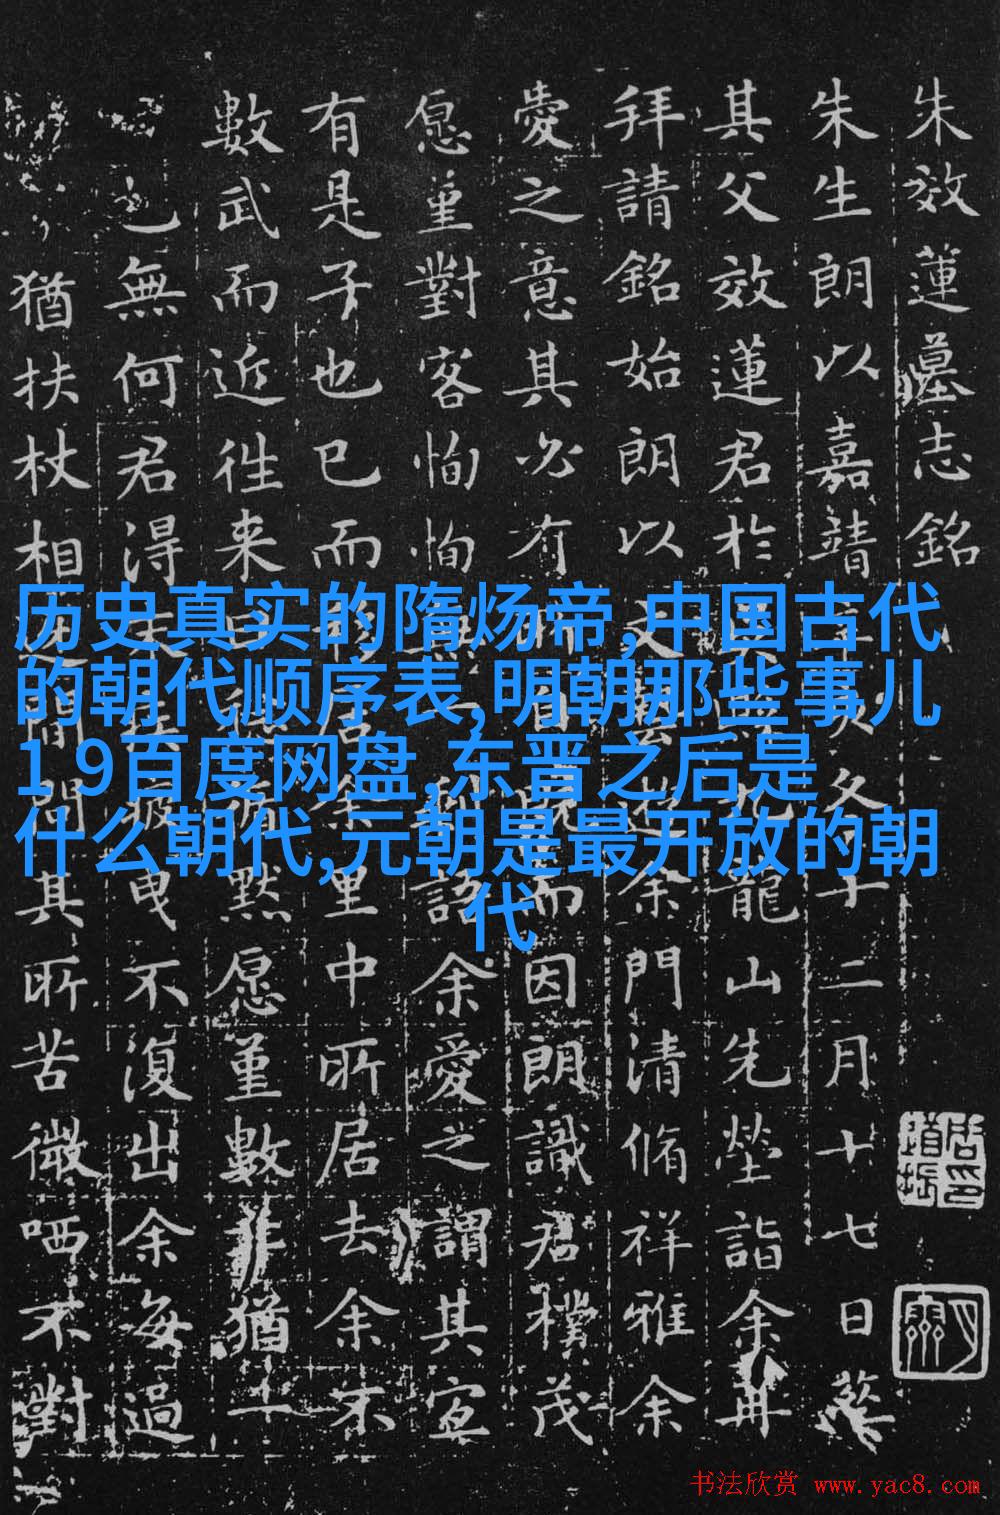 朱效蓮墓志銘
朱生朗以嘉靖辛亥冬十二月十七日葬
其父效蓮君於龍山先塋詣余再
拜請銘始朗以文遊余門清脩祥雅余
愛之意其必有所自既而因朗識君樸茂
愿重對客恂恂余愛之謂其宜
有是子也已而移居余里中所居去余不
數武而近徃来默愿重數猶一
也無何君得疾疲曳不復出余每過
猶扶杖相間問其所苦微哂不對
历史真实的隋炀帝,中国古代
的朝代顺序表,明朝那些事儿
1 9百度网盘,东晋之后是
什么朝代,元朝是最开放的朝
代
书法欣赏 www.yac8.com